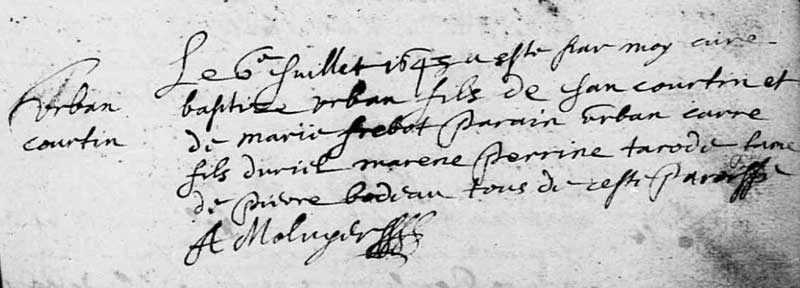 Urban
courtin
Le 6e Juillet 1645 a este par moy cure
baptize urban fils de Jan courtin et
de marie frebot parain urban carre
fils duriel marene perrine tarode fame
de pierre bodeau tous de ceste paroisse
A Moluger